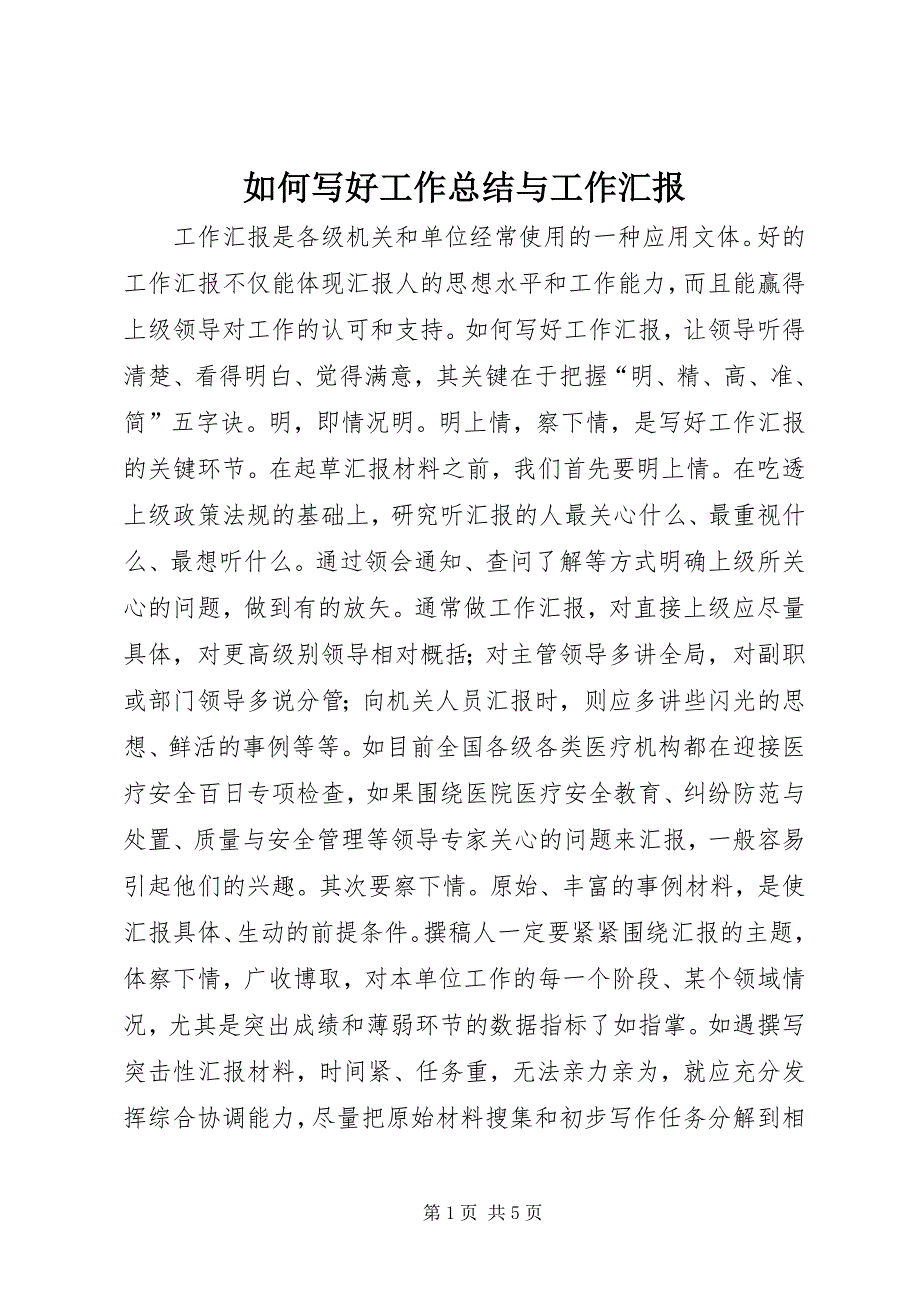 如何写好工作总结与工作汇报
工作汇报是各级机关和单位经常使用的一种应用文体。好的
工作汇报不仅能体现汇报人的思想水平和工作能力，而且能赢得
上级领导对工作的认可和支持。如何写好工作汇报，让领导听得
清楚、看得明白、觉得满意，其关键在于把握“明、精、高、准、
简”五字诀。明，即情况明。明上情，察下情，是写好工作汇报
的关键环节。在起草汇报材料之前，我们首先要明上情。在吃透
上级政策法规的基础上，研究听汇报的人最关心什么、最重视什
么、最想听什么。通过领会通知、查问了解等方式明确上级所关
心的问题，做到有的放矢。通常做工作汇报，对直接上级应尽量
具体，对更高级别领导相对概括；对主管领导多讲全局，对副职
或部门领导多说分管；向机关人员汇报时，则应多讲些闪光的思
想、鲜活的事例等等。如目前全国各级各类医疗机构都在迎接医
疗安全百日专项检查，如果围绕医院医疗安全教育、纠纷防范与
处置、质量与安全管理等领导专家关心的问题来汇报，一般容易
引起他们的兴趣。其次要察下情。原始、丰富的事例材料，是使
汇报具体、生动的前提条件。撰稿人一定要紧紧围绕汇报的主题，
体察下情，广收博取，对本单位工作的每一个阶段、某个领域情
况，尤其是突出成绩和薄弱环节的数据指标了如指掌。如遇撰写
突击性汇报材料，时间紧、任务重，无法亲力亲为，就应充分发
挥综合协调能力，尽量把原始材料搜集和初步写作任务分解到相
第 1 页 共 5 页